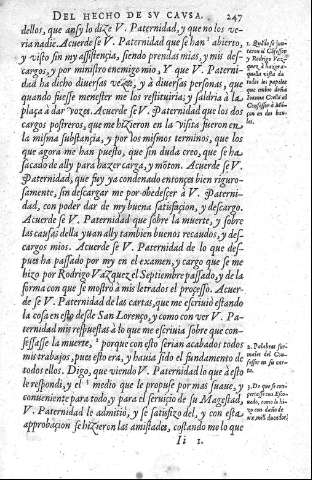 DEL HECHO DE SV CAVSA. 247
dellos, que ansy lo dize V. Paternidad, y que no los ve-
ria nadie. Acuerde se V. Paternidad que se han ¹ abierto,
y visto sin my assistencia, siendo prendas mias, y mis des-
cargos, y por ministro enemigo mio, Y que V. Paterni-
dad ha dicho diuersas vezes, y à diuersas personas, que
quando fuesse menester me los restituiria; y saldria a la
plaça à dar vozes. Acuerde se V. Paternidad que los dos
cargos postreros, que me hizieron en la visita fueron en
la misma substancia, y por los mismos terminos, que los
que agora me han puesto, que sin duda creo, que se ha
sacado de ally para hazer carga, y mõton. Acuerde se V.
Paternidad, que fuy ya condenado entonçes bien riguro-
samente, sin descargar me por obedesçer à V. Paterni-
dad, con poder dar de my buena satisfaçion, y descargo.
Acuerde se V. Paternidad que sobre la muerte, y sobre
las causas della yuan ally tambien buenos recaudos, y des-
cargos mios. Acuerde se V. Paternidad de lo que des-
pues ha passado por my en el examen, y cargo que se me
hizo por Rodrigo Vazquez el Septiembre passado, y de la
forma con que se mostrò à mis letrados el processo. Acuer-
de se V. Paternidad de las cartas, que me escriuiò estando
la cosa en esto desde San Lorenço, y como con ver V. Pa-
ternidad mis respuestas à lo que me escriuia sobre que con-
fessasse la muerte, ² porque con esto serian acabados todos
mis trabajos, pues esto era, y hauia sido el fundamento de
todos ellos. Digo, que viendo V. Paternidad lo que à esto
le respondi, y el ³ medio que le propuse por mas suaue, y
conueniente para todo, y para el seruicio de su Magestad,
V. Paternidad le admitiò, y se satisfizo del, y con esta
approbaçion se hizieron las amistades, costando me lo que
Ii 1.
1. Quãdo se jun-
taron el Cõfessor
y Rodrigo Vaz-
quez, à hazer a-
quella vista de
todos los papeles
que embio doña
Iuana Coello al
Cõfessor à Mõ-
çon en dos bau-
les.
2. Palabras for-
males del Con-
fessor en su car-
ta.
3. De que se com-
pusiesse con Esco-
uedo, como lo hi-
zo con daño de